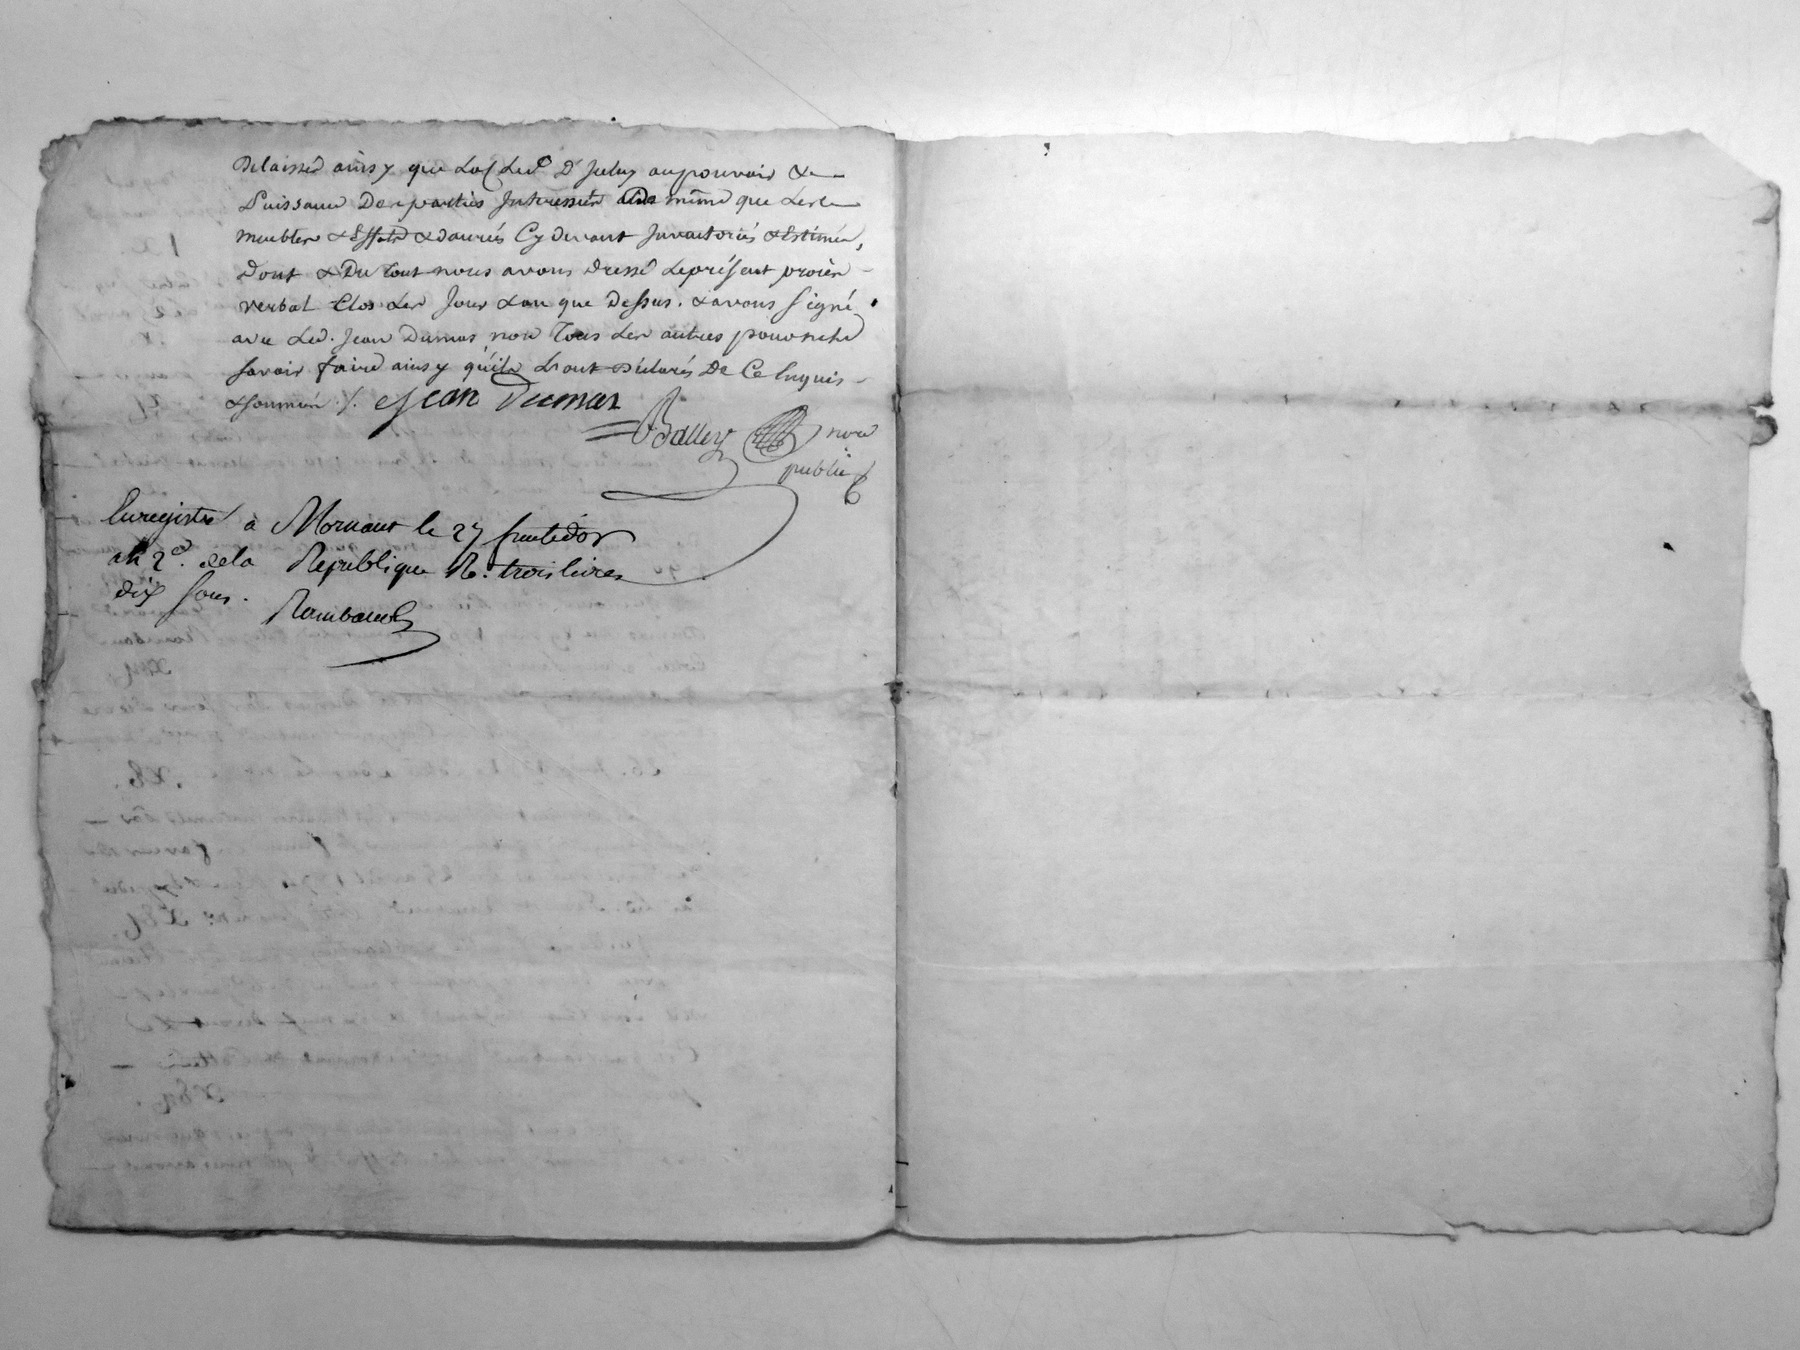 Delaissé ainsy que aupouvoir &
Puissance Des parties Interessées De même que Les
meubles & Effets & danrés Cy devant Inventoriés & Estimés,
Dont & Du Tout nous avons Dressé Leprésent procès
verbal Clos Les Jour & an que Dessus. & avons signé
avec Led. Jean Dumas non Tous Les autres pour ne
savoir faire ainsy qu'ils L'ont Déclarés De Ce Enquis
& sommés ./. Jean Dumas
Balley nore
public
Enregistré à Mornant le 27 fructidor
an 2e. dela Republique R. trois livres
dix sous.
Rambaud